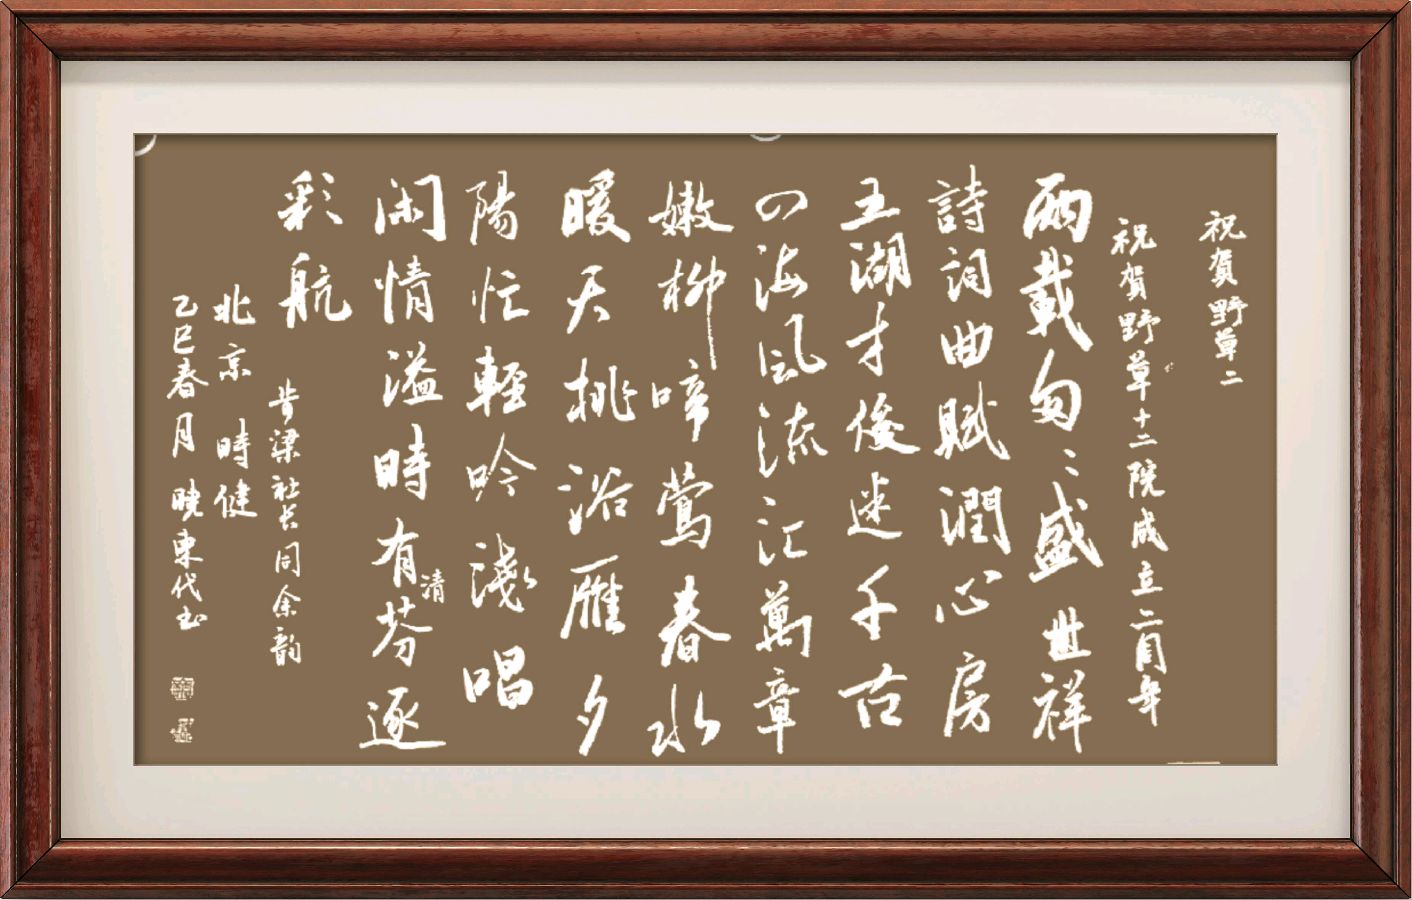 祝賀野草二
祝賀野草十二院成立二周年
兩載匆〻盛世祥
詩詞曲賦潤心房
五湖才俊迷千古
四海風流汇萬章
嫩柳啼鶯春水
暖夭桃浴雁夕
陽忙輕吟淺唱
闲情溢時有清芬逐
彩航
步梁社长同余韵
北京 時健
乙巳春月 晓東代书